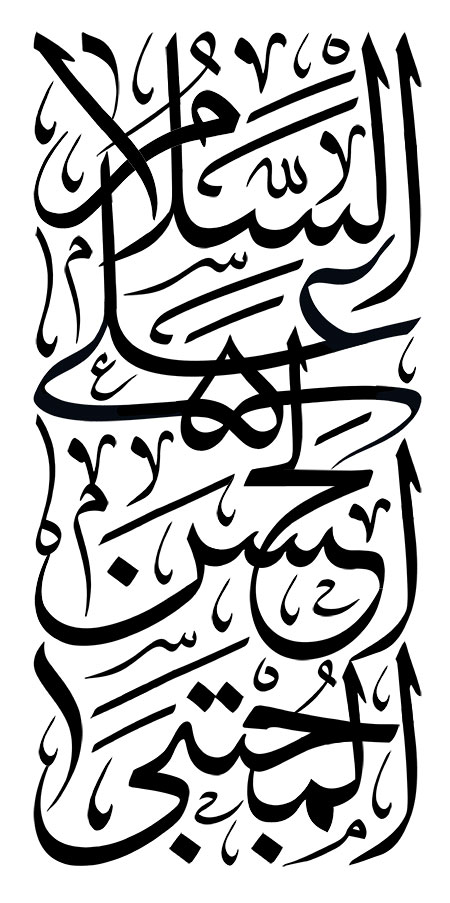 السَّلام
على
الحسن
المجتبى